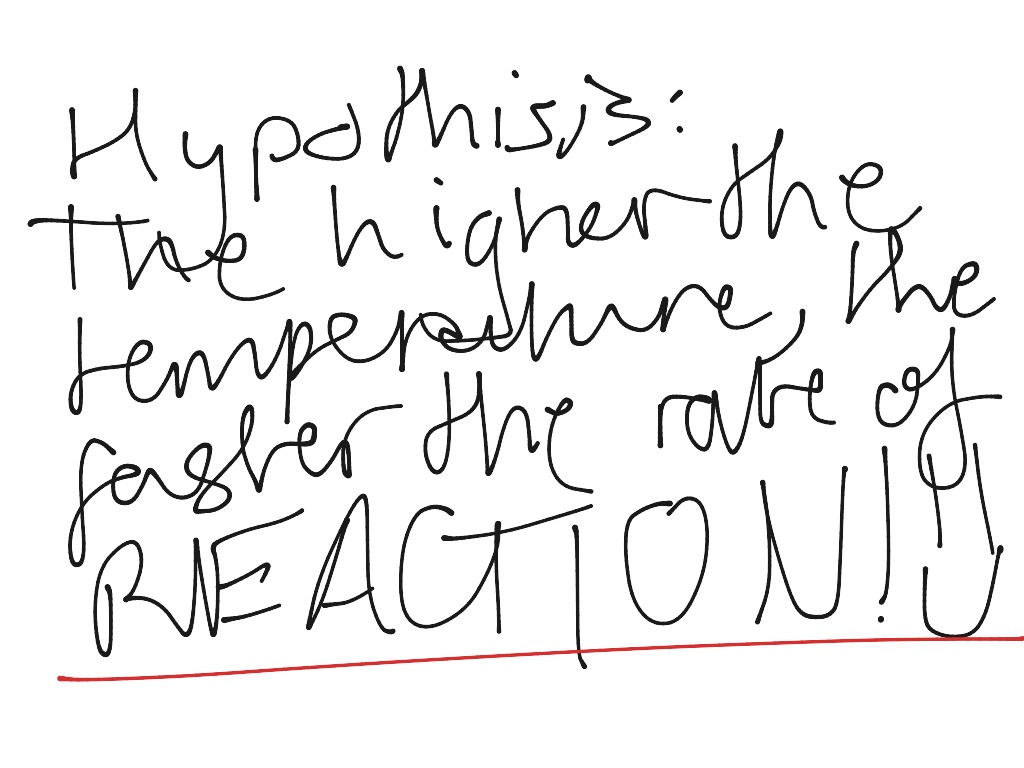 Hypothisis:
The higher the
temperature, the
faster the rate of
REACTION! :)